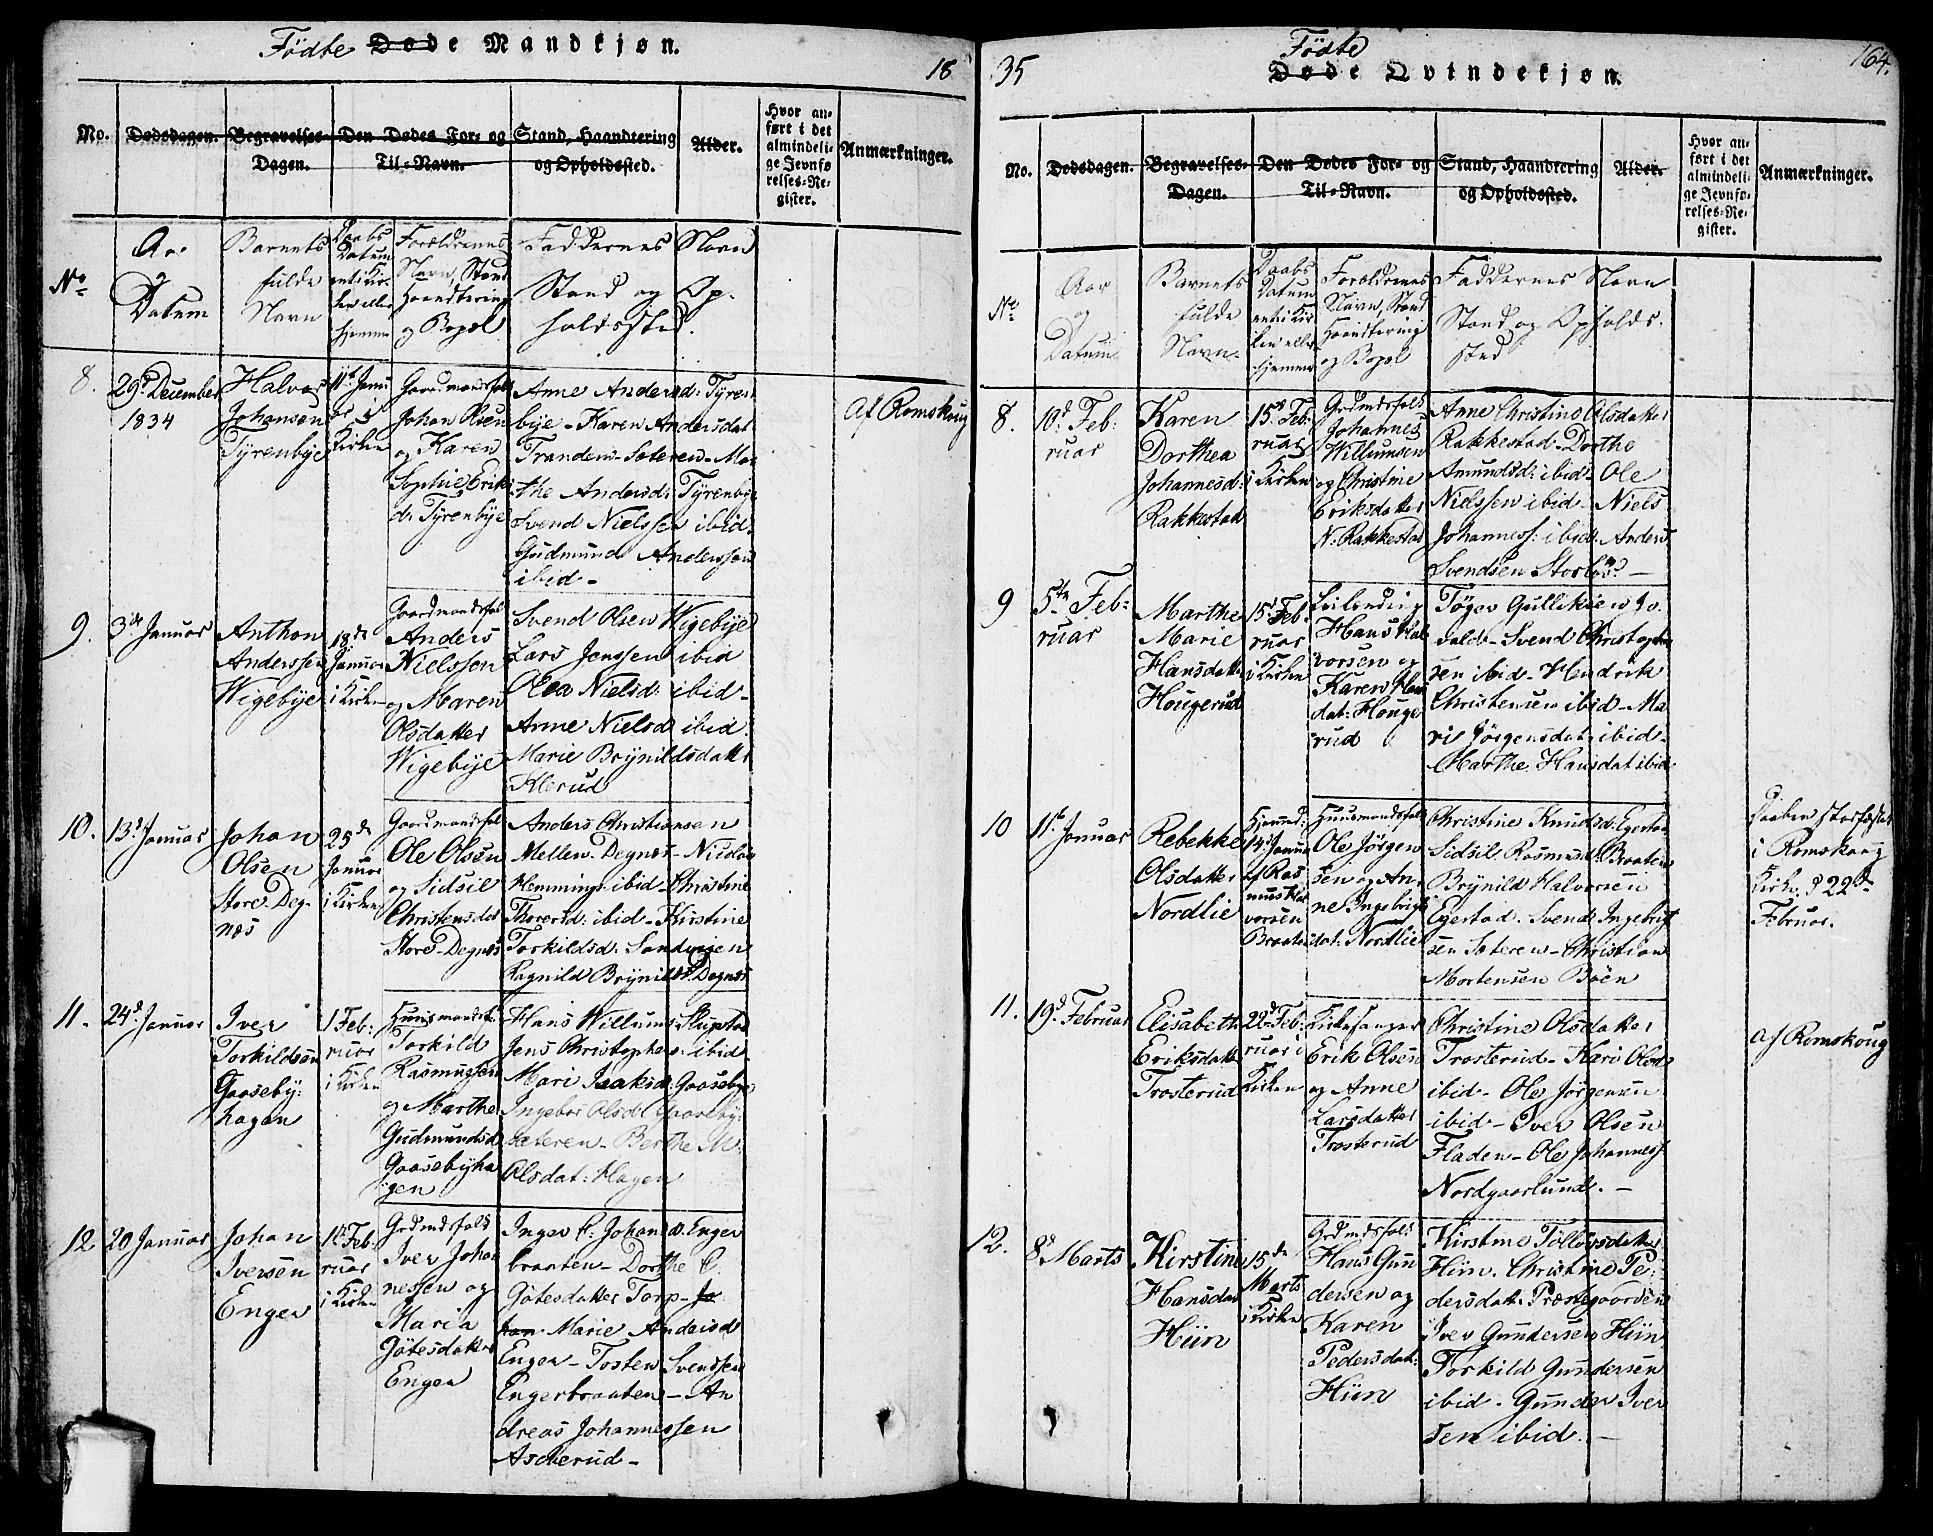 Fødte Døde Mandkjøn.
18
No.
Dødsdagen.
Begravelses-
Dagen.
Den Dødes For- og
Til-Navn.
Stand, Haandtering
og Opholdssted.
Alder.
Hvor an-
ført i det
almindeli-
ge Jevnfø
relses-Re-
gister.
Anmærkninger.
No
Aar
og
Datum
Barnets
fulde
Navn
Daabs
Datum
enten i Kir-
ken eller
hjemme
Forældrenes
Navn, Stand
Haandtering
og Bopæl
Faddernes Navn
Stand og Op-
holdssted.
8.
29d December
1834
Halvor
Johansen
Tyrenbye
11te Janu
ar i
Kirken
Gaardmandsfolk
Johan
og Karen
Sophie Erik
d: Tyrenbye
Anne Andersd: Tyren
bye - Karen Andersdat
Tranden - Sæteren - Mar
the Andersd: Tyrenbye
Svend Nielssen ibid -
Gudmund Anderssen
ibid -
Af Romskoug
9.
3die Januar
Anthon
Anderssen
Wigebye
18de
Januar
i Kirken
Gaardmandsfolk
Anders
Nielssen
og Maren
Olsdatter
Wigebye
Svend Olsen Wigebye
Lars Jenssen ibid
Olea Nielsd: ibid -
Anne Nielsd ibid
Marie Brynildsdatter
Klerud
10.
13d Januar
Johan
Olsen
Store Deg-
næs
25de
Januar
i Kirken
Gaardmandsfolk
Ole Olsen
og Sidsil
Christensdat
Store-Degnæs
Anders Christiansen
Mellem Degnæs - Nicolai
Hemmings: ibid - Christine
Thorersd: ibid - Kirstine
Torkildsd: Sandvigen
Ragnild Brynilds: Degnæs
11.
24d Januar
Iver
Torkildsen
Gaaseby-
hagen
1 Feb-
ruar
i Kirken
Huusmandsf.
Torkild
Rasmussen
og Marthe
Gudmundsd
Gaasebyha
gen
Hans Willums: Slupstad
Jens Christophers: ibid -
Mari Isaksd: Gaasebye
Ingebor Olsd Gaaseby-
sæteren - Berthe M:
Olsdat: Hagen
12
20 Januar
Johan
Iversen
Enger
1te Feb-
ruar
i Kirken
Grdmdsfolk
Iver Johan
nessen og
Maria
Götesdatter
Enger
Inger C: Johansd. Enger
braaten - Dorthe C.
Götesdatter Torp - Jo
han - Marie Andersd
Enger - Tosten Svendsen
Engerbraaten - An
dreas Johannessen
Ascherud -
35
Fødte
Døde Qvindekjøn.
164.
No.
Dødsdagen.
Begravelses-
Dagen.
Den Dødes For- og
Til-Navn.
Stand, Haandtering
og Opholdssted.
Alder.
Hvor an-
ført i det
almindeli-
ge Jevnfø-
relses-Re-
gister.
Anmærkninger.
No
Aar
og
Datum
Barnets
fulde
Navn
Daabs
Datum
enten i Kir
ken eller
hjemme
Forældrenes
Navn, Stand
Haandtering
og Bopæl
Faddernes Navn
Stand og Opholds-
sted
8.
10d Feb-
ruar
Karen
Dorthea
Johannesd:
Rakkestad
15de Feb-
ruar
i Kirken
Grdmdsfolk
Johannes
Willumsen
og Christine
Eriksdatter
N: Rakkestad
Anne Christine Olsdatter
Rakkestad - Dorthe
Amundsd: ibid - Ole
Nielssen ibid - Niels
Johanness: ibid - Anders
Svendsen -
9
5te Feb-
ruar
Marthe
Marie
Hansdatter
Hougerud
15d Feb-
ruar
i Kirken
Leilending
Hans Hal
vorsen og
Karen
dat: Houge
rud
Töger Gulliksen
- Svend Christophe
sen ibid - Hendrik
Christensen ibid - Ma
ri Jörgensdat: ibid -
Marthe Hansdat ibid
10
11te Januar
Rebekke
Olsdatter
Nordlie
Hjemmed:
14d Janua
af Ras
mus Hal
vorsen
Braaten
Huusmandsfolk
Ole Jörgen
sen og An-
ne Ingebrigt
dat: Nordlie
Christine Knudsd: Egestad
Sidsil Rasmusd: Braaten
Brynild Halvorsen
Egestad - Svend Ingebrigt
sen Sæteren - Christian
Mortensen Böen
Daaben stadfæstet
i Romskoug
Kirke d 22de
Februar.
11.
19d Februar
Elisabeth
Eriksdatter
Trosterud
22d Feb-
ruar i
Kirken
Kirkesanger
Erik Olsen
og Anne
Larsdatter
Trosterud
Christine Olsdatter
Trosterud - Kari Olsd
ibid - Ole Jörgensen
ibid - Iver Olsen
Fladen - Ole Johanness
Nordgaarlund. -
af Romskoug
12.
8d Marts
Kirstine
Hansdat
Hiin
15de
Marts
i Kirken
Grdmdsfolk
Hans Gun
dersen og
Karen
Pedersdat:
Hiin
Kirstine Tollövsdatter
Hiin - Christine Pe-
dersdat: Præstegaarden
Iver Gundersen Hiin
Torkild Gundersen
ibid - Gunder Iver
sen ibid. -